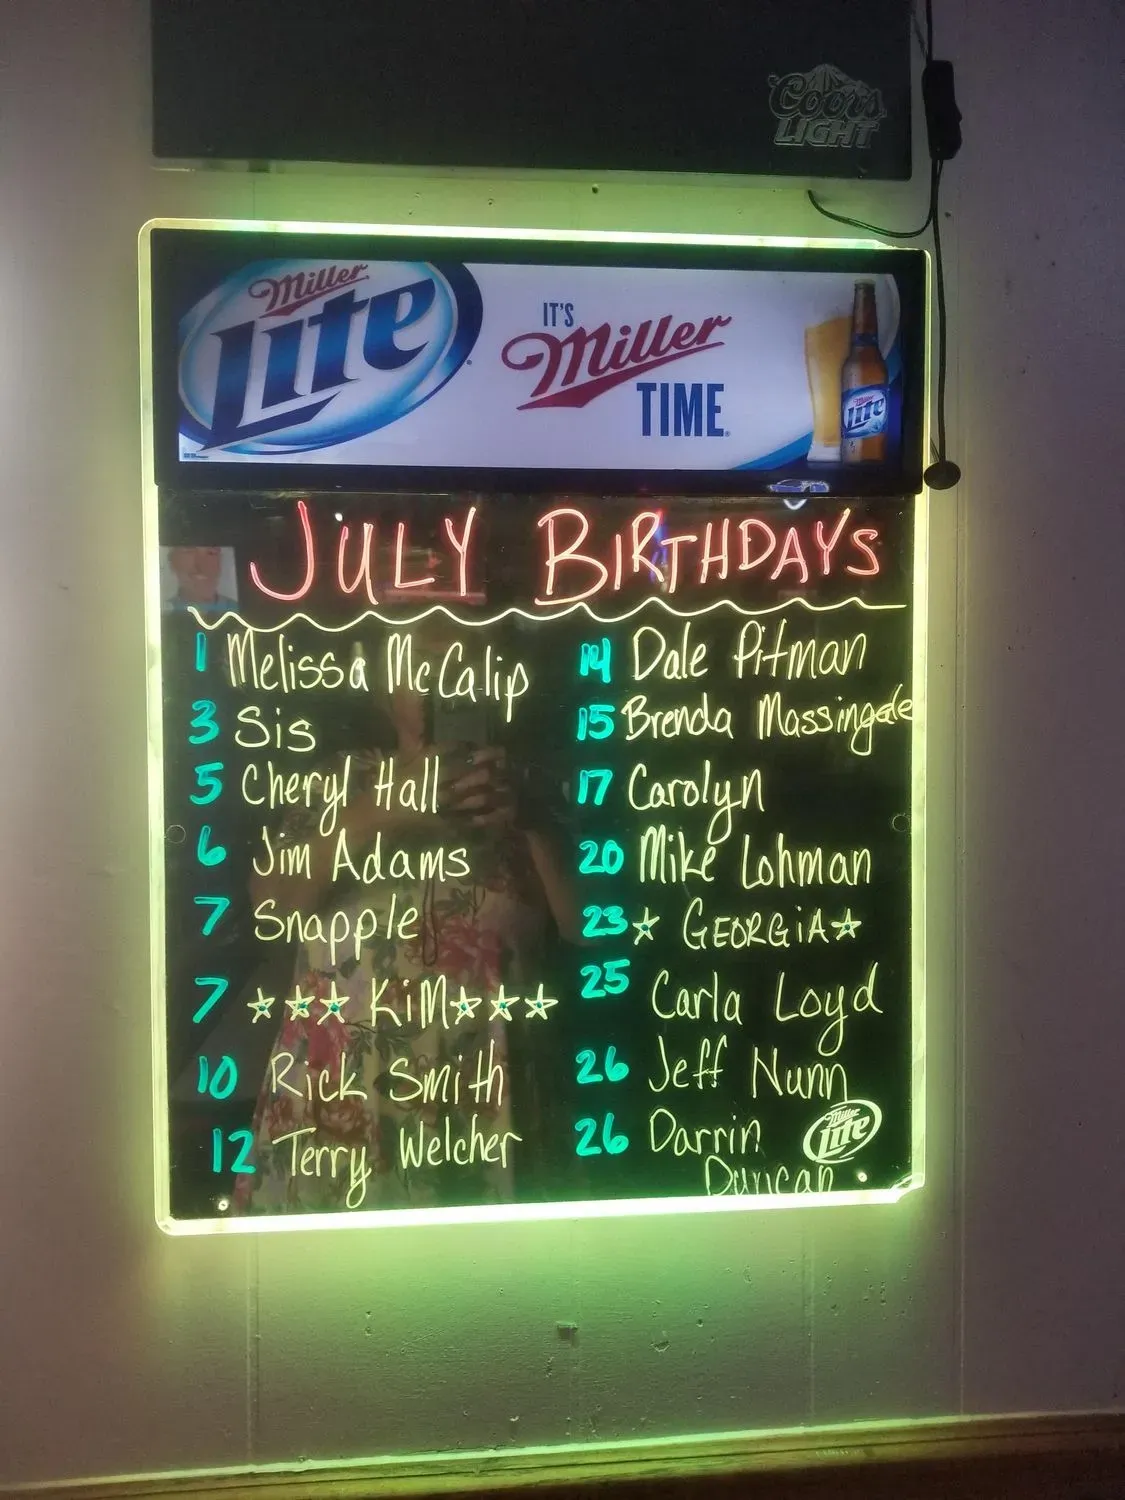 Coors
LIGHT
Miller
Lite
IT'S
Miller
TIME
Miller
Lite
JULY BIRTHDAYS
1 Melissa McCalip
3 Sis
5 Cheryl Hall
6 Jim Adams
7 Snapple
7 ★★★ KiM ★★★
10 Rick Smith
12 Terry Welcher
14 Dale Pitman
15 Brenda Massingale
17 Carolyn
20 Mike Lohman
23 ★ GEORGiA ★
25 Carla Loyd
26 Jeff Nunn
26 Darrin
Duncan
Miller
Lite